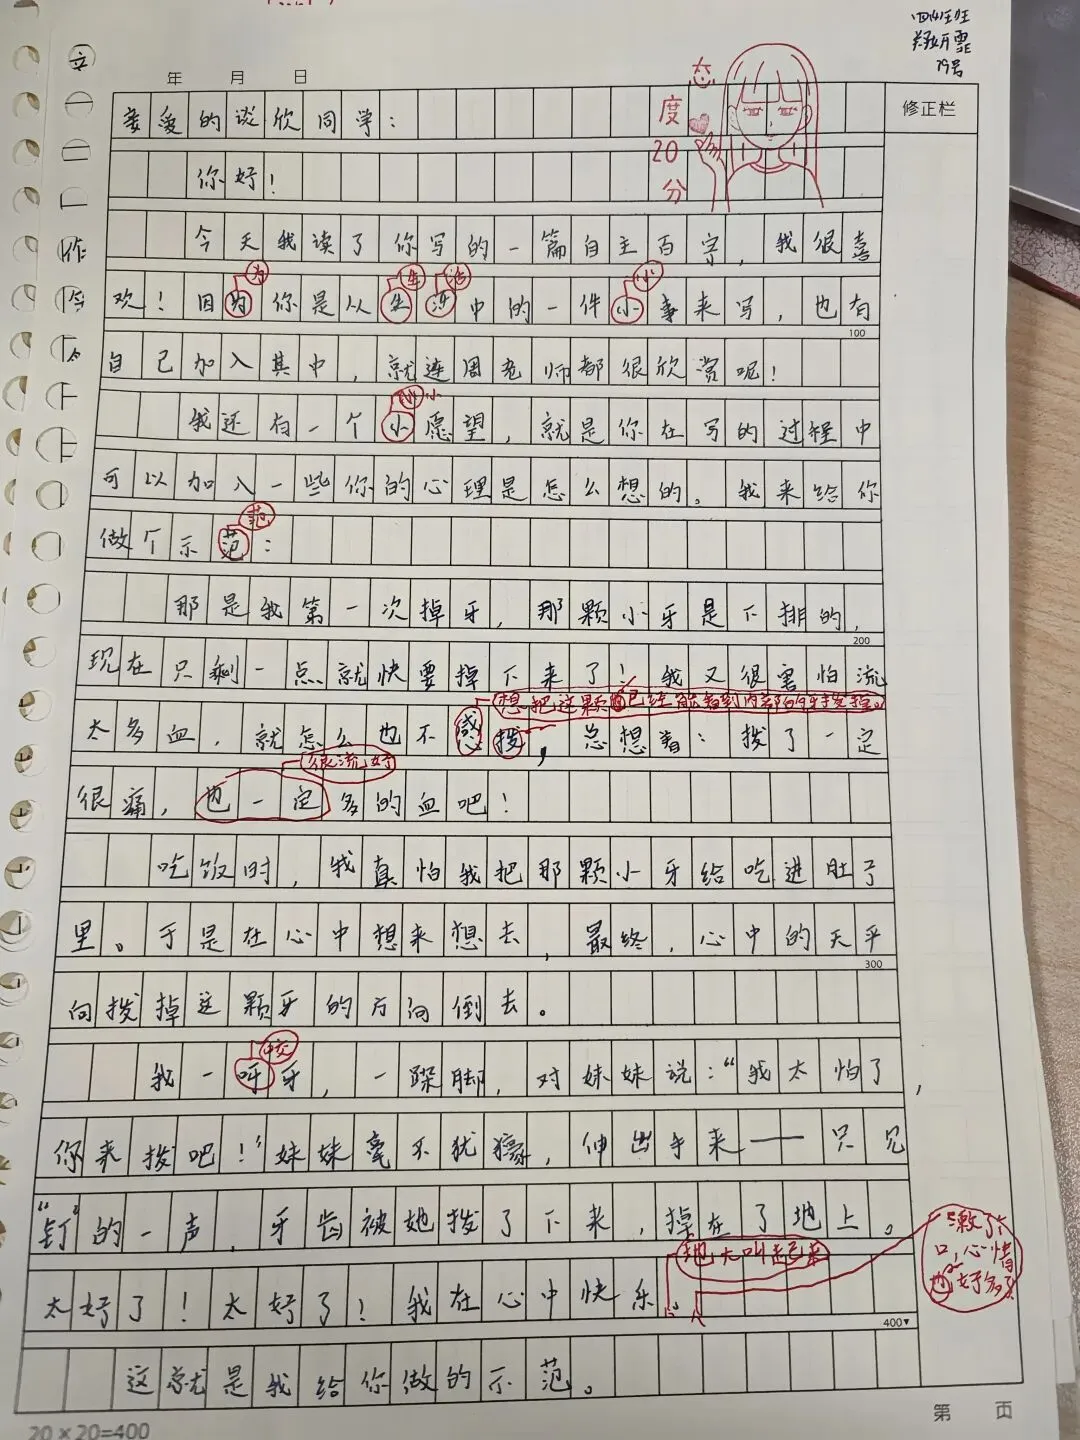 四(4)班
29号
年 月 日
态度20分
修正栏
亲爱的谈欣同学：
你好！
今天我读了你写的一篇自主百字，我很喜
为 生 活 小
欢！因为你是以生活中的一件小事来写，也有
100
自己加入其中，就连周老师都很欣赏呢！
小
我还有一个小愿望，就是你在写的过程中
可以加入一些你的心理是怎么想的。我来给你
范
做个示范：
那是我第一次掉牙，那颗小牙是下排的，
200
现在只剩一点就快要掉下来了！我又很害怕流
想把这颗已经能看到内部的牙拔掉。
太多血，就怎么也不感拨，总想着：拨了一定
很流好
很痛，也一定多的血吧！
吃饭时，我真怕我把那颗小牙给吃进肚子
里。于是在心中想来想去，最终，心中的天平
300
向拨掉这颗牙的方向倒去。
咬
我一呀牙，一跺脚，对妹妹说：“我太怕了，
你来拨吧！”妹妹毫不犹豫，伸出手来——只见
“钉”的一声，牙齿被她拨了下来，掉在了地上。
地大叫起来
漱了口，心情也好多了
太好了！太好了！我在心中快乐
400
这就是我给你做的示范。
20×20=400
第 页